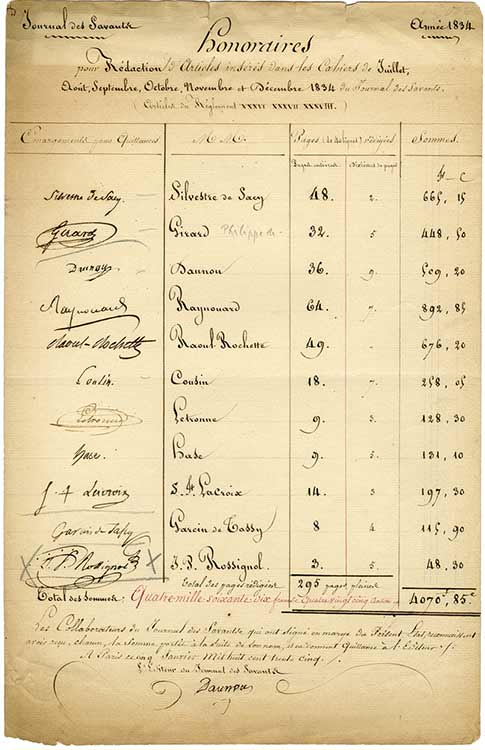 Journal des Savants
Année 1834
Honoraires
pour Rédaction d'Articles insérés dans les Cahiers de Juillet,
Août, Septembre, Octobre, Novembre et Décembre 1834 du Journal des Savants.
(Articles du Réglement XXXVI XXXVII XXXVIII.)
Emargements pour Quittances
M.M.
Pages rédigées
Sommes.
Pages entières
Dixièmes de pages
f c
Silvestre de Sacy Silvestre de Sacy 48. 2. 665, 15
Girard Girard Philippe de 32. 5 448, 50
Daunou Daunou 36. 9. 509, 20
Raynouard Raynouard 64. 7. 892, 85
Raoul-Rochette Raoul Rochette 49. " 676, 20
Cousin Cousin 18. 7. 258, 05
Letronne Letronne 9. 3. 128, 30
Hase Hase 9. 5. 131, 10
J-A Lacroix S. Lacroix 14. 3 197, 30
Garcin de Tassy Garcin de Tassy 8 4 115, 90
J. P. Rossignol J. P. Rossignol 3. 5 48, 30
Total des pages rédigées 295 pages pleines
Total des Sommes: Quatre mille soixante dix francs Quatre vingt cinq cent. 4070f, 85c
Les Collaborateurs du Journal des Savants qui ont signé en marge du Présent Etat reconnaissent
avoir reçu, chacun, la Somme portée à la suite de son nom, et en donnent Quittance à l'Editeur ./.
A Paris ce cinq Janvier Mil huit cent trente cinq ./.
L'Editeur du Journal des Savants
Daunou